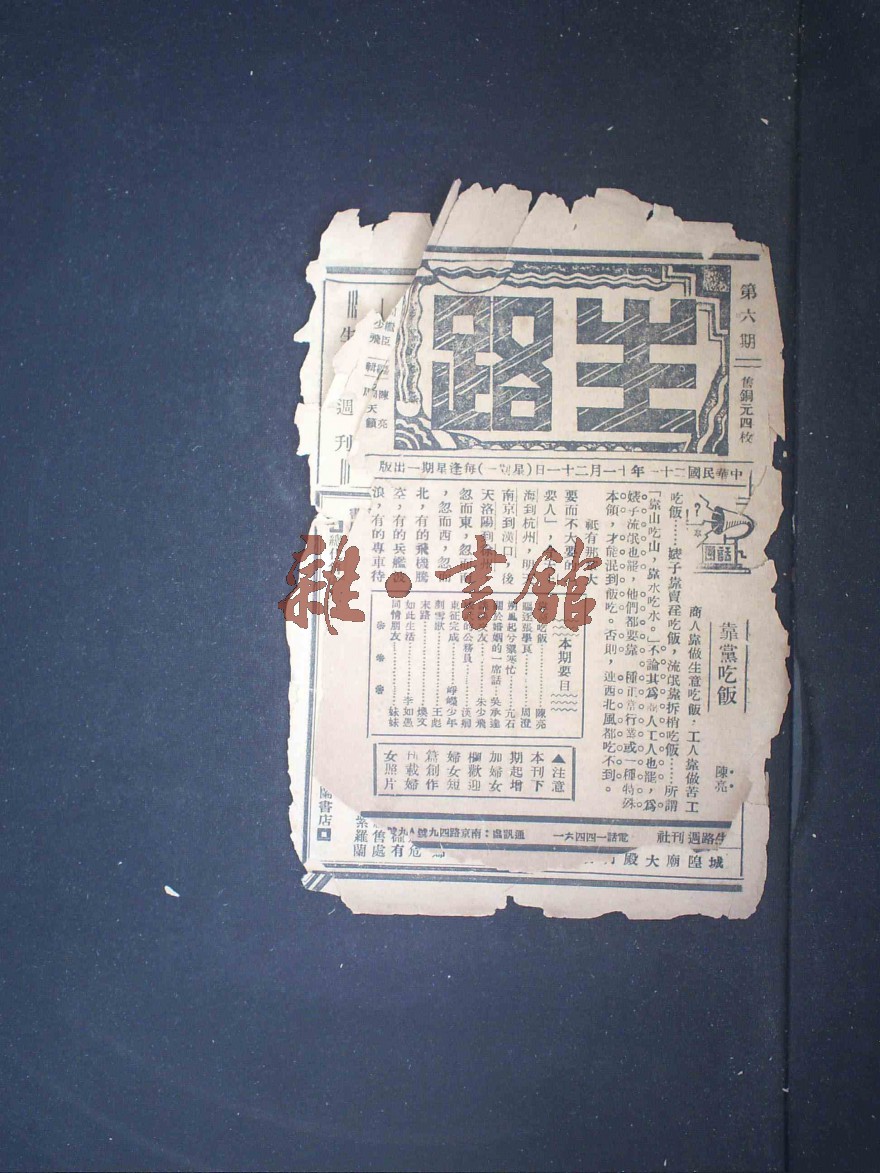 第六期
舊銅元四枚
生路
中華民國二十一年十一月二十一日(星期一)每逢星期一出版
少飛
陳亮
天籟
週刊
團話
靠黨吃飯
陳亮
商人靠做生意吃飯，工人靠做苦工
吃飯……婊子靠賣淫吃飯，流氓靠拆梢吃飯……所謂
「靠山吃山，靠水吃水。」不論其爲商人工人也罷，爲
婊子流氓也罷，他們都要靠一種正當行業或一種特殊
本領，才能混到飯吃。否則，連西北風都吃不到。
祇有那大
要而不大要的
要人」，今天上
海到杭州，明天
南京到漢口，後
天洛陽到
忽而東，忽而南
，忽而西，忽而
北，有的飛機騰
空，有的兵艦
浪，有的專車待
本期要目
吃飯………陳亮
驅逐張學良………周澄
朔風起兮單寒忙………元石
關於婚姻的一席話…吳承達
女………朱少飛
的公務員………漢
東征完成………崢嶸少年
刺雪歐………王彪
末路………煥文
如此生活………李如愚
同情朋友………妹妹
▲注意
本刊下
期起增
加婦女
欄歡迎
婦女短
篇創作
載婦
女照片
生路週刊社
電話一四四六一
通訊處：南京路四九號
城隍廟大殿
書店
售處
紫羅蘭
雜·書館